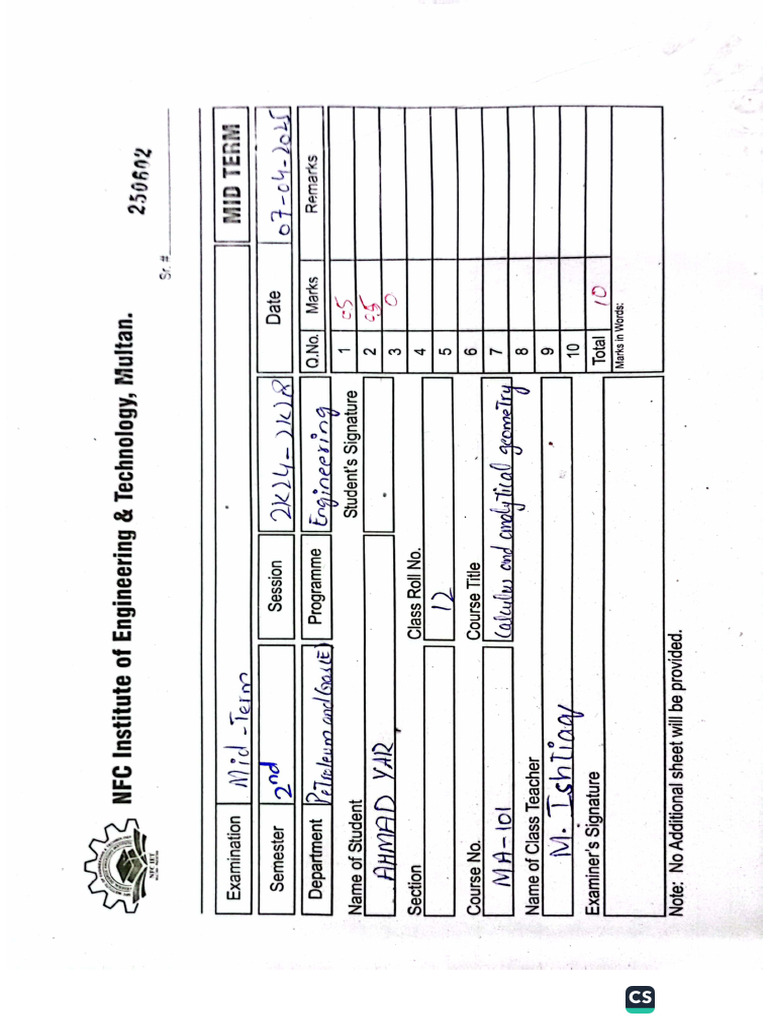 NFC Institute of Engineering & Technology, Multan.
250602
Sr. #
Examination Mid-Term MID TERM
Semester 2nd Session 2K24-2K28 Date 07-04-2025
Department Petroleum and Gas(E) Programme Engineering
Q.No. Marks Remarks
Name of Student Student's Signature
AHMAD YAR
1 05
2 05
3 0
4
5
6
7
8
9
10
Total 10
Marks in Words:
Section Class Roll No.
12
Course No. Course Title
MA-101 Calculus and analytical geometry
Name of Class Teacher
M. Ishtiaq
Examiner's Signature
Note: No Additional sheet will be provided.
CS